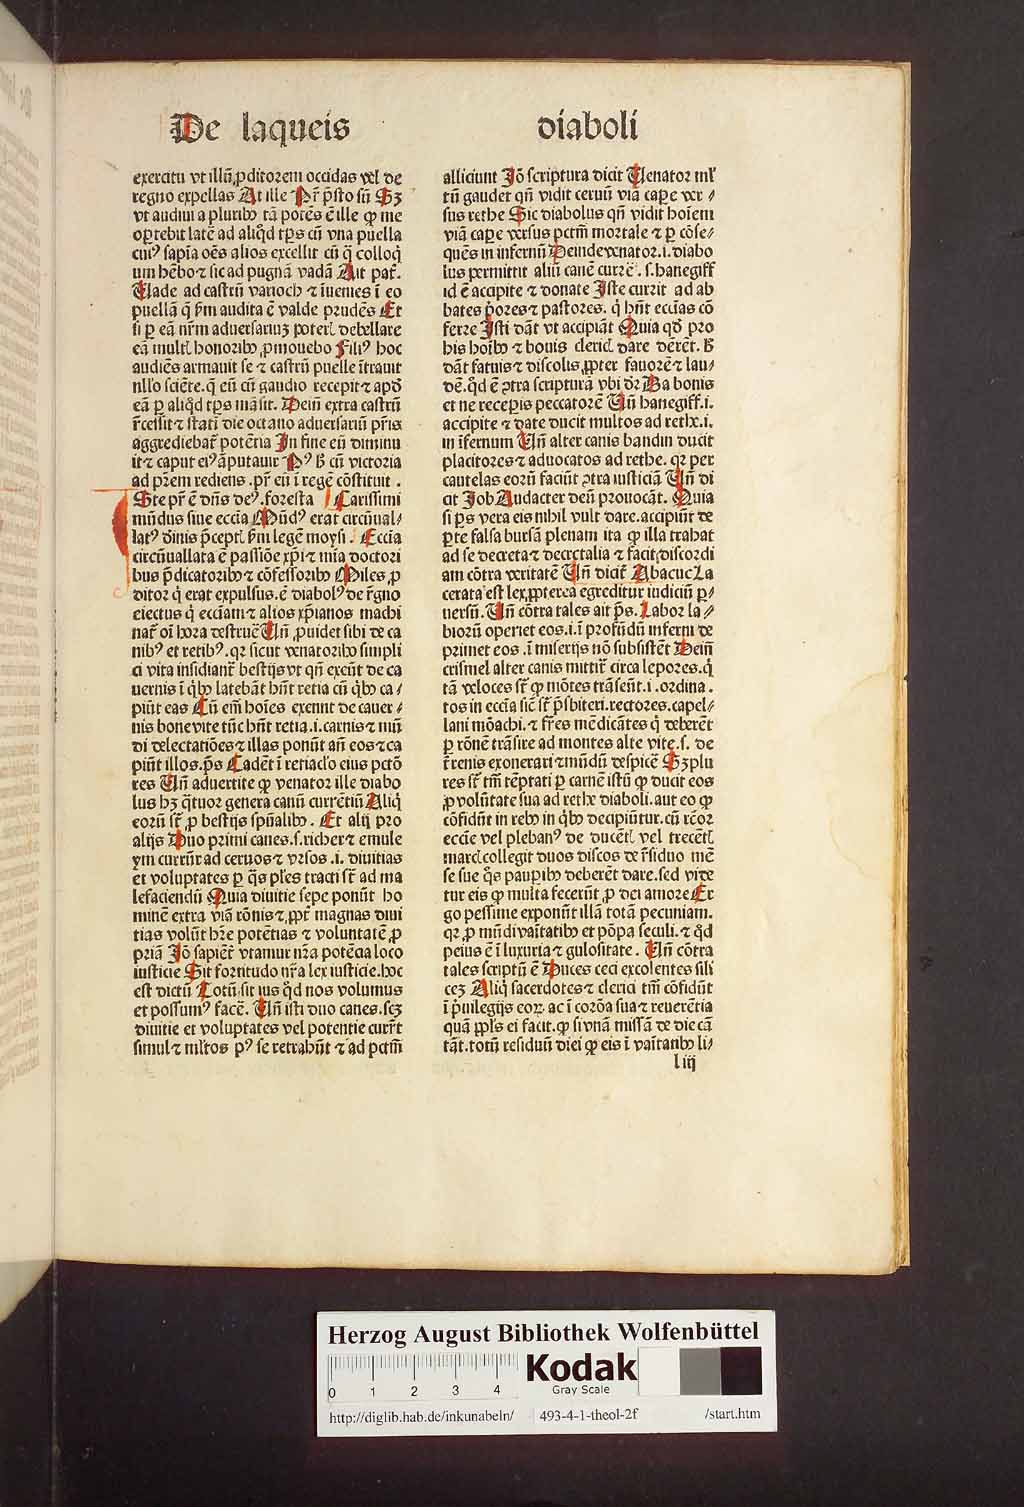 De laqueis diaboli
exercitu vt illũ ꝓditorem occidas vel de
regno expellas At ille Pr̃ p̃sto sũ Sꝫ
vt audiui a pluribꝰ tã potẽs ẽ ille ꝙ me
oꝑtebit latẽ ad aliq̃d tp̃s cũ vna puella
cuiꝰ sapĩa oẽs alios excellit cũ q̃ colloq̃
um hẽbo ⁊ sic ad pugnã vadã Ait pat̃.
Uade ad castrũ varioch ⁊ ĩuenies ĩ eo
puellã q̃ ẜm audita ẽ valde prudẽs Et
si ꝑ eã nr̃m aduersariuꝫ poteris debellare
eã multis honoribꝰ ꝓmouebo Filiꝰ hoc
audiẽs armauit se ⁊ castrũ puelle ĩtrauit
nll'o sciẽte. q̃ eũ cũ gaudio recepit ⁊ apđ
eã ꝑ aliq̃d tp̃s mãsit. Deiñ extra castrũ
r̃cessit ⁊ statĩ die octauo aduersariũ pr̃is
aggrediebat̃ potẽtia In fine eũ diminu
it ⁊ caput eiꝰ ãputauit Pꝰ h̃ cũ victoria
ad pr̃em rediens . pr̃ eũ ĩ regẽ cõstituit .
Iste pr̃ ẽ dñs deꝰ. foresta Carissimi
mũdus siue eccĩa Mũdꝰ erat circũual⸗
latꝰ diuis p̃ceptis ẜm legẽ moysi . Eccĩa
circũuallata ẽ passiõe xp̃i ⁊ mĩa doctori
bus p̃dicatoribꝰ ⁊ cõfessoribꝰ Miles ꝓ
ditor q̃ erat expulsus. ẽ diabolꝰ de r̃gno
eiectus q̃ eccĩam ⁊ alios xp̃ianos machi
nat̃ oĩ hora destruẽ Uñ ꝓuidet sibi de ca
nibꝰ et retibꝰ. qr sicut venatoribꝰ simpli
ci vita insidiant̃ bestijs vt qñ exeũt de ca
uernis ĩ q̃bꝰ latebãt hñt retia cũ q̃bꝰ ca⸗
piũt eas Cũ em̃ hoĩes exeunt de cauer⸗
nis bone vite tũc hñt retia .i. carnis ⁊ mũ
di delectatiões ⁊ illas ponũt añ eos ⁊ ca
piũt illos. p̃s Cadẽt ĩ retiac̃lo eius pctõ
res Uñ aduertite ꝙ venator ille diabo
lus hꝫ q̃tuor genera canũ currẽtiũ Aliq̃
eorũ st̃ ꝓ bestijs spñalibꝰ . Et alij pro
alijs Duo primi canes. s. richer ⁊ emule
ym currũt ad ceruos ⁊ vrsos .i. diuitias
et voluptates ꝑ q̃s pl'es tracti st̃ ad ma
lefaciendũ Quia diuitie sepe ponũt ho
minẽ extra viã rõnis ⁊ ꝓpt̃ magnas diui
tias volũt hr̃e potẽtias ⁊ voluntatẽ ꝓ
priã Iõ sapiẽt̃ vtamur nr̃a potẽcia loco
iusticie Sit fortitudo nr̃a lex iusticie. hoc
est dictũ Totũ. sit ius q̃d nos volumus
et possumꝰ facẽ. Uñ isti duo canes. scꝫ
diuitie et voluptates vel potentie currũt
simul ⁊ ml'tos pꝰ se retrahũt ⁊ ad pctm̃
alliciunt Iõ scriptura dicit Uenator ml'
tũ gaudet qñ vidit ceruũ viã caꝑe ver⸗
sus rethe Sic diabolus qñ vidit hoĩem
viã caꝑe versus pctm̃ mortale ⁊ ꝑ cõse⸗
quẽs in infernũ Deinde venator .i. diabo
lus permittit aliũ canẽ currẽ . s. hanegiff
id ẽ accipite ⁊ donate Iste currit ad ab
bates p̃ores ⁊ pastores. q̃ hñt eccĩas cõ
ferre Isti dãt vt accipiãt Quia qđ pro
bis hoĩbꝰ ⁊ bonis clericis dare debẽrẽt. h̃
dãt fatuis ⁊ discolis ꝓpter fauorẽ ⁊ lau⸗
dẽ. q̃d ẽ ↄtra scripturã vbi dr̃ Da bonis
et ne receꝑis peccatorẽ Uñ hanegiff .i.
accipite ⁊ date ducit multos ad rethe .i.
in ĩfernum Uñ alter canis bandin ducit
placitores ⁊ aduocatos ad rethe. qr per
cautelas eorũ faciũt ↄtra iusticiã Uñ di
cit Iob Audacter deũ prouocãt. Quia
si p̃s vera eis nihil vult dare. accipiũt de
ꝑte falsa bursã plenam ita ꝙ illa trahat
ad se decreta ⁊ decretalia ⁊ facit discordi
am cõtra veritatẽ Uñ dicit̃ Abacuc La
cerata est lex ꝓpterea egreditur iudiciũ ꝑ⸗
uersũ. Uñ cõtra tales ait p̃s. Labor la⸗
biorũ operiet eos .i. ĩ profũdũ inferni de
primet eos .i miserijs nõ subsistẽt Deiñ
crismel alter canis mittit̃ circa lepores. q̃
tã veloces st̃ ꝙ mõtes trãseũt .i . ordina.
tos in eccĩa sic st̃ p̃sbiteri. rectores. capel⸗
lani mõachi. ⁊ fr̃es mẽdicãtes q̃ deberẽt
ꝑ rõnẽ trãsire ad montes alte vite. s. de
t̃renis exonerari ⁊ mũdũ despicẽ Sꝫ plu
res st̃ tm̃ tẽptati ꝑ carnẽ istũ ꝙ ducit eos
ꝓ volũtate sua ad rethe diaboli. aut eo ꝙ
cõfidũt in rebꝰ in q̃bꝰ decipiũtur. cũ rc̃or
eccĩe vel plebanꝰ de ducẽtis vel trecẽtis
marcis collegit duos discos de r̃siduo mẽ
se sue q̃s pauꝑibꝰ deberẽt dare. sed vide
tur eis ꝙ multa fecerũt ꝓ dei amore Er
go pessime exponũt illã totã pecuniam.
qr ꝓ mũdi vaĩtatibꝰ et põpa seculi. ⁊ q̃d
peius ẽ ĩ luxuria ⁊ gulositate . Uñ cõtra
tales scriptũ ẽ Duces ceci excolentes sili
ceꝫ Aliq̃ sacerdotes ⁊ clerici tm̃ cõfidũt
ĩ p̃uilegijs eoꝝ ac ĩ corõa sua ⁊ reuerẽtia
quã ppl's ei facit. ꝙ si vnã missã de die cã
tãt. totũ residuũ diei ꝙ eis ĩ vaĩtatibꝰ li⸗
l iij
Herzog August Bibliothek Wolfenbüttel
0 1 2 3 4
Kodak
Gray Scale
http://diglib.hab.de/inkunabeln/ 493-4-1-theol-2f /start.htm